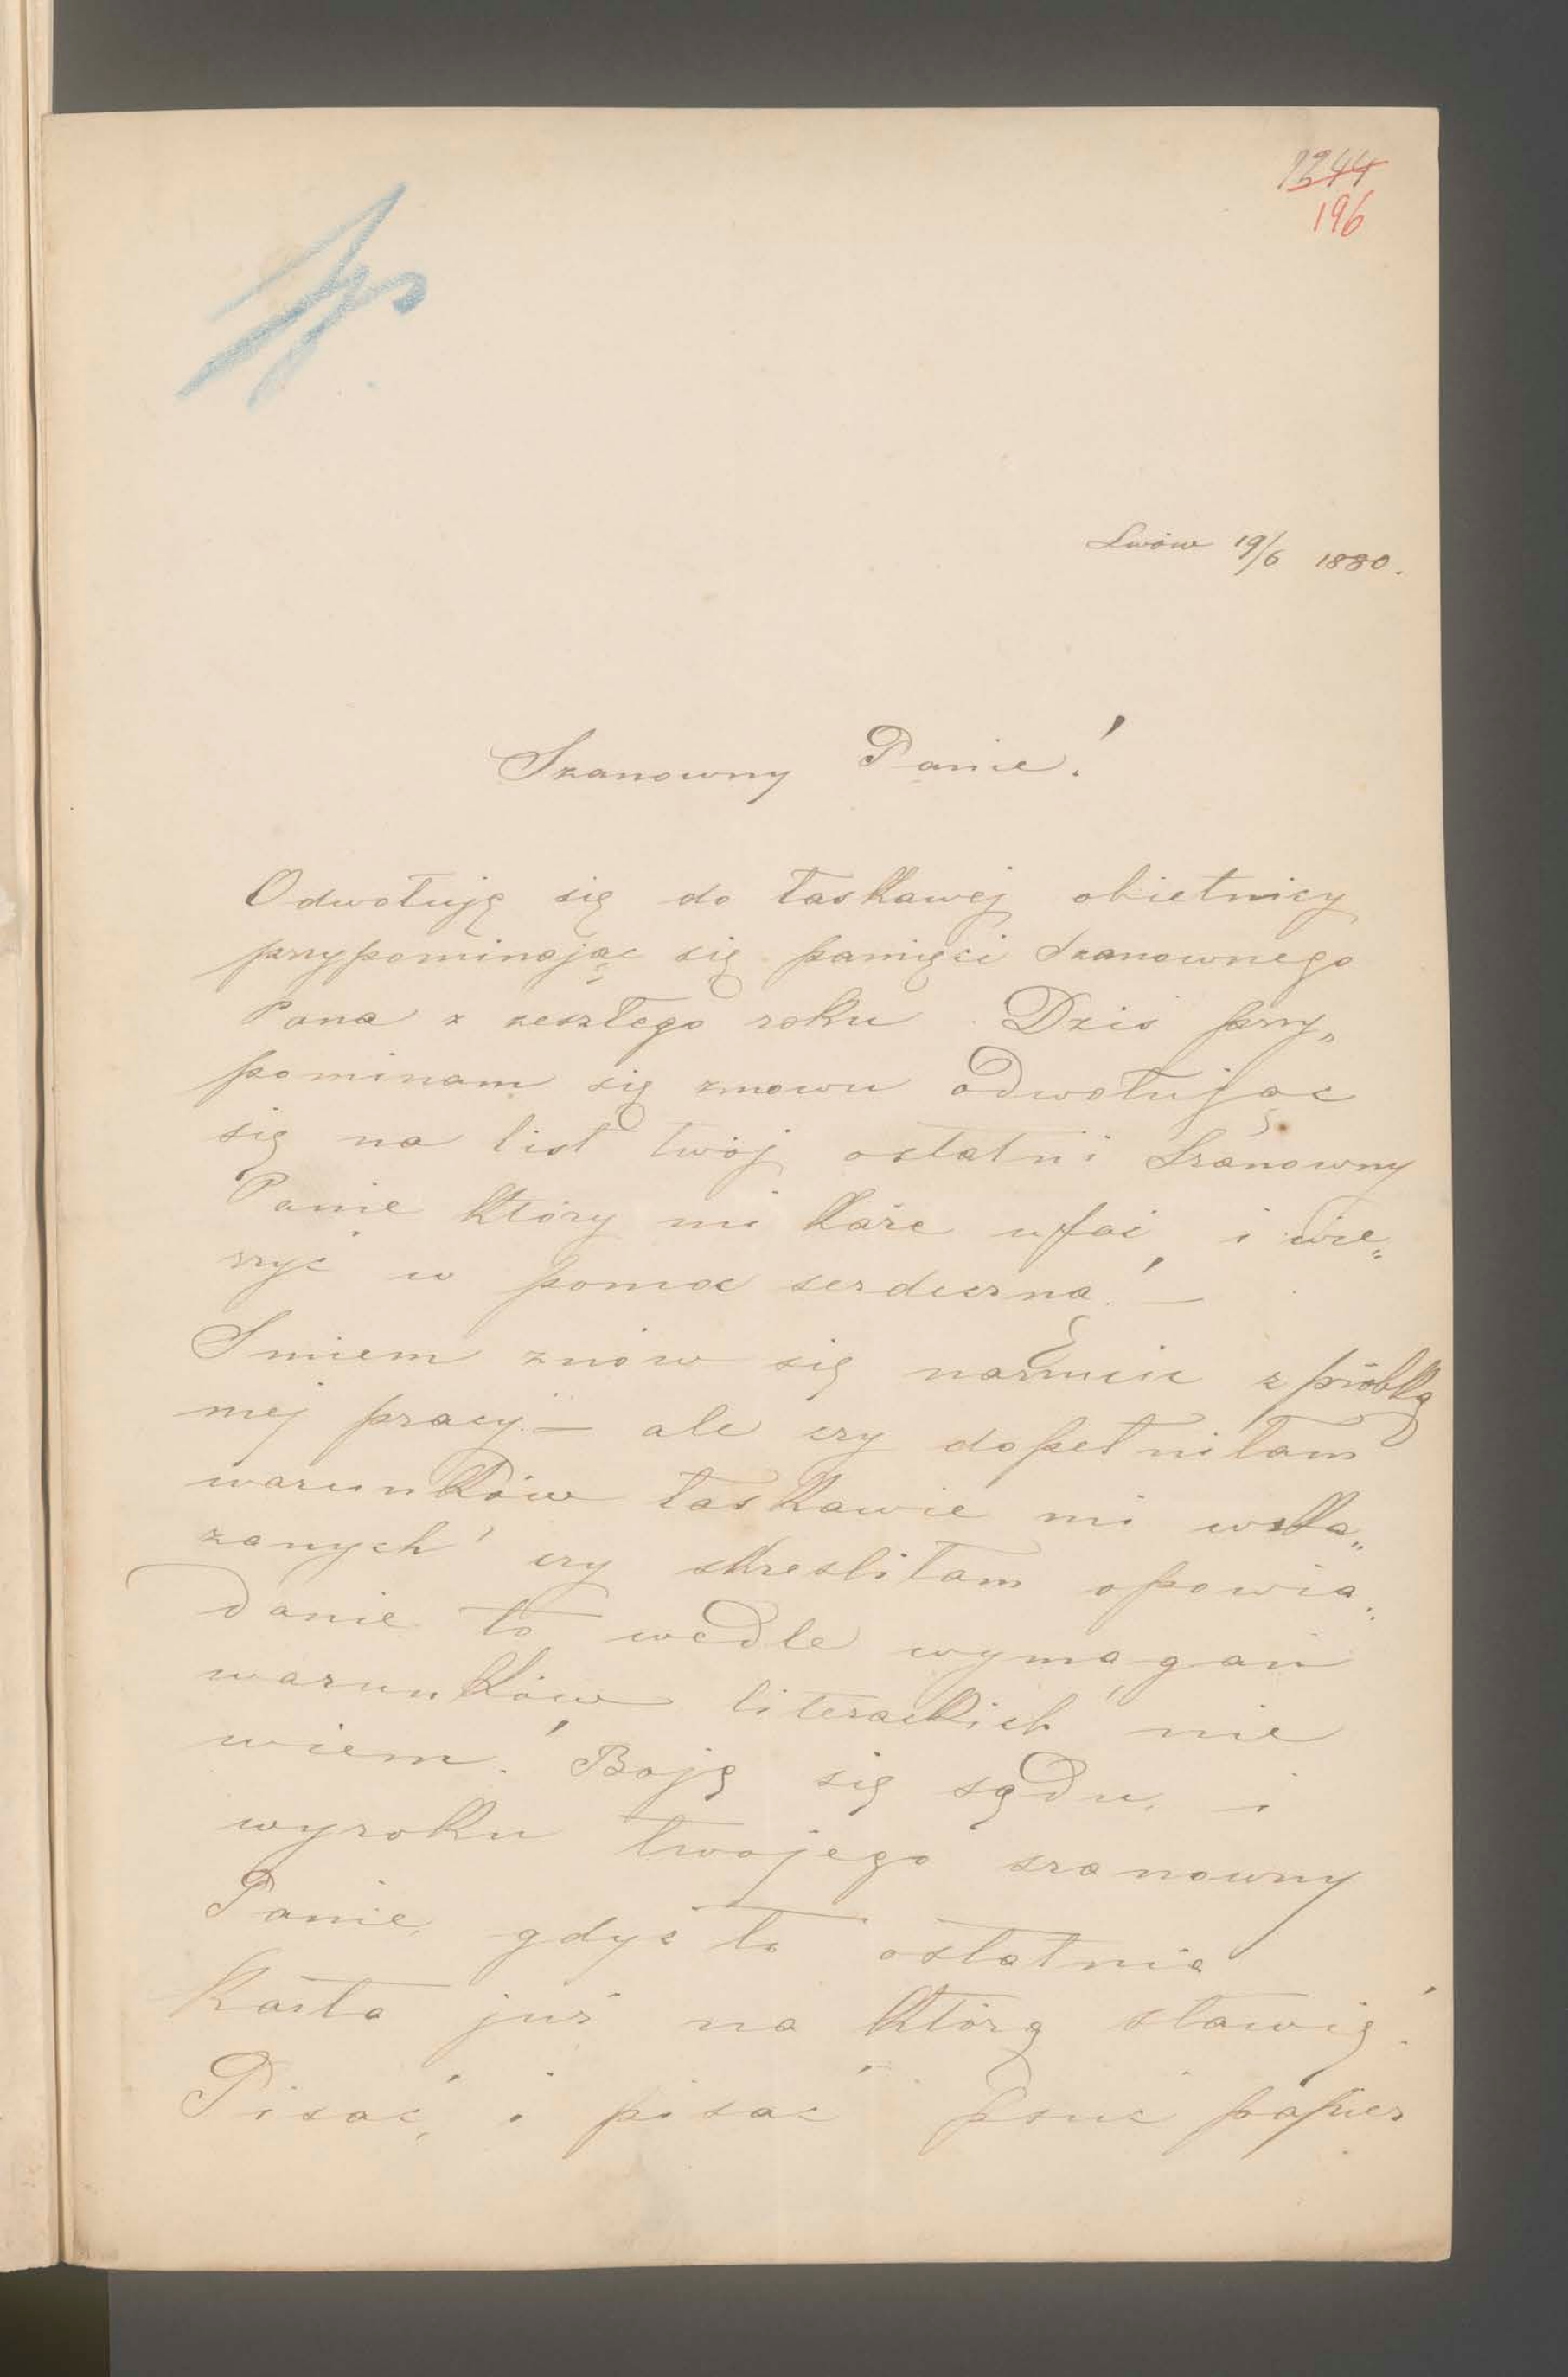 1244
196
Lwów 19/6 1880.
Szanowny Panie!
Odwołuję się do łaskawej obietnicy
przypominając się pamięci Szanownego
Pana z zeszłego roku. Dziś przy„
pominam się znowu odwołując
się na list twój ostatni Szanowny
Panie który mi każe ufać, i wie„
rzyć w pomoc serdeczną! —
Smiem znów się narzucić z próbką
mej pracy. — ale czy dopełniłam
warunków łaskawie mi wska„
zanych' czy skreśliłam opowia„
danie to wedle wymagań
warunków literackich nie
wiem! Boję się sądu, i
wyroku twojego szanowny
Panie, gdyż to ostatnia
karta już na którą stawię!
Pisać, i pisać psuć papier